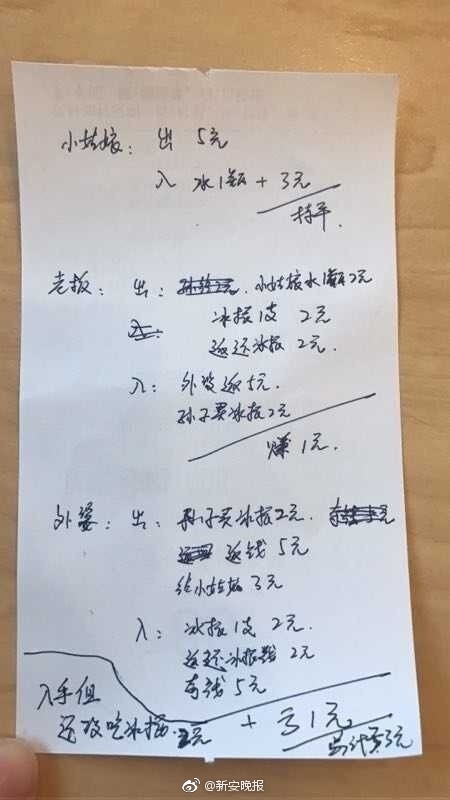 小姑娘： 出 5元
入 水1瓶 + 3元
持平.
老板： 出： 小姑娘水1瓶2元
冰棍1支 2元
返还冰棍 2元.
入： 外婆返5元.
孙子买冰棍2元
赚1元.
外婆： 出： 孙子买冰棍2元.
返钱 5元
给小姑娘 3元
入： 冰棍1支 2元.
返还冰棍钱 2元
有钱5元
入手但
还没吃冰棍. 2元
+ 亏1元
总计亏3元
@新安晚报